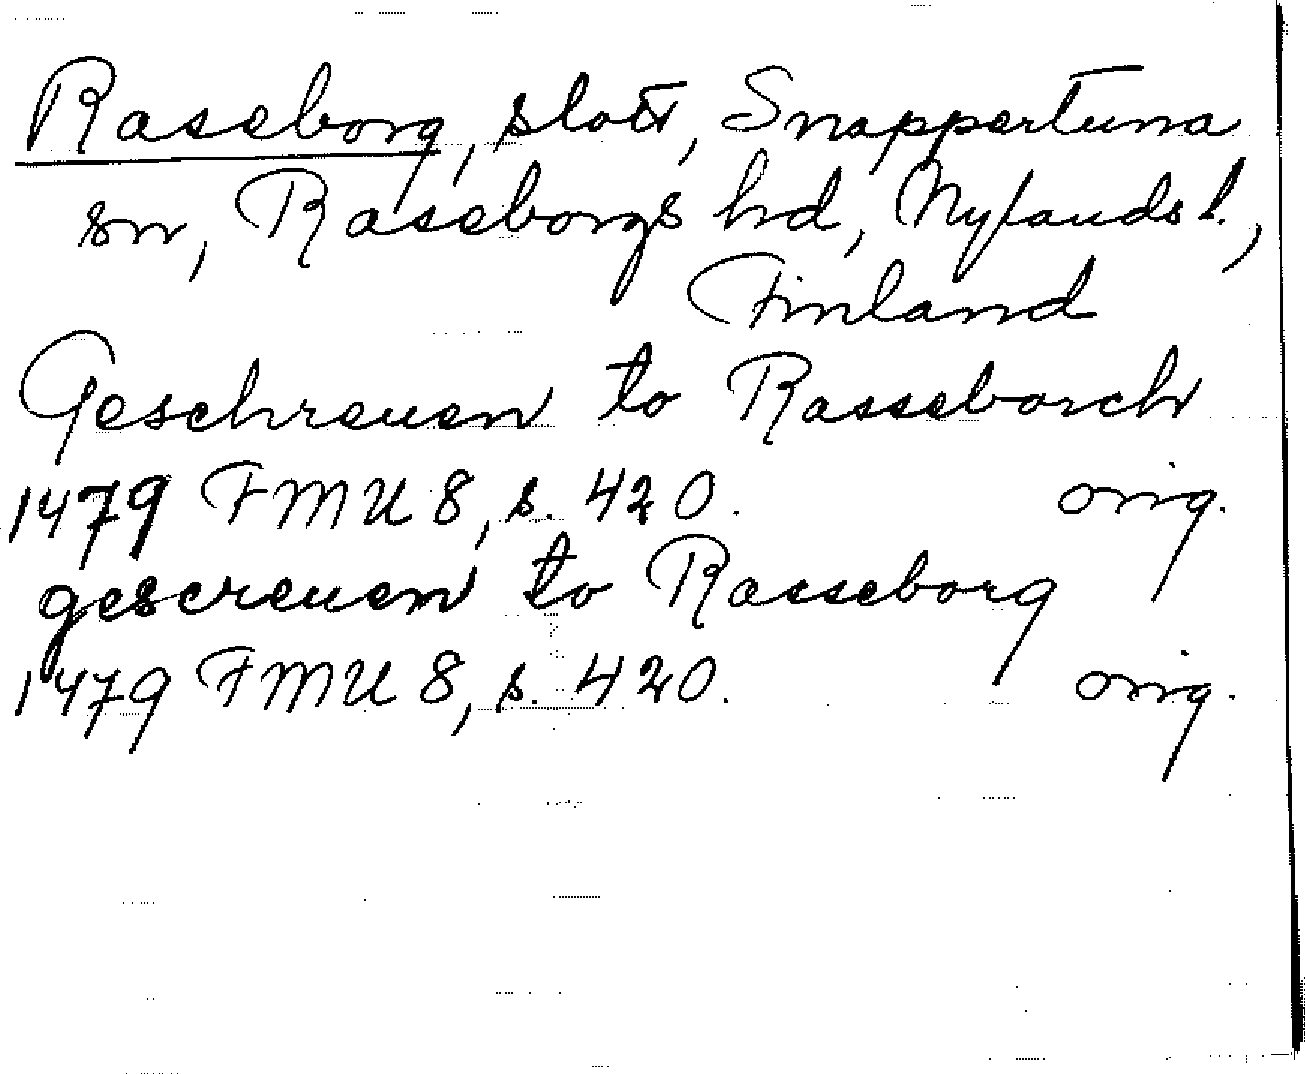 Raseborg, slott, Snappertuna
sn, Raseborgs hd, Nylands l.,
Finland
Geschreuen to Rasseborch
1479 FMU 8, s. 420. orig.
gescreuen to Rasseborg
1479 FMU 8, s. 420. orig.